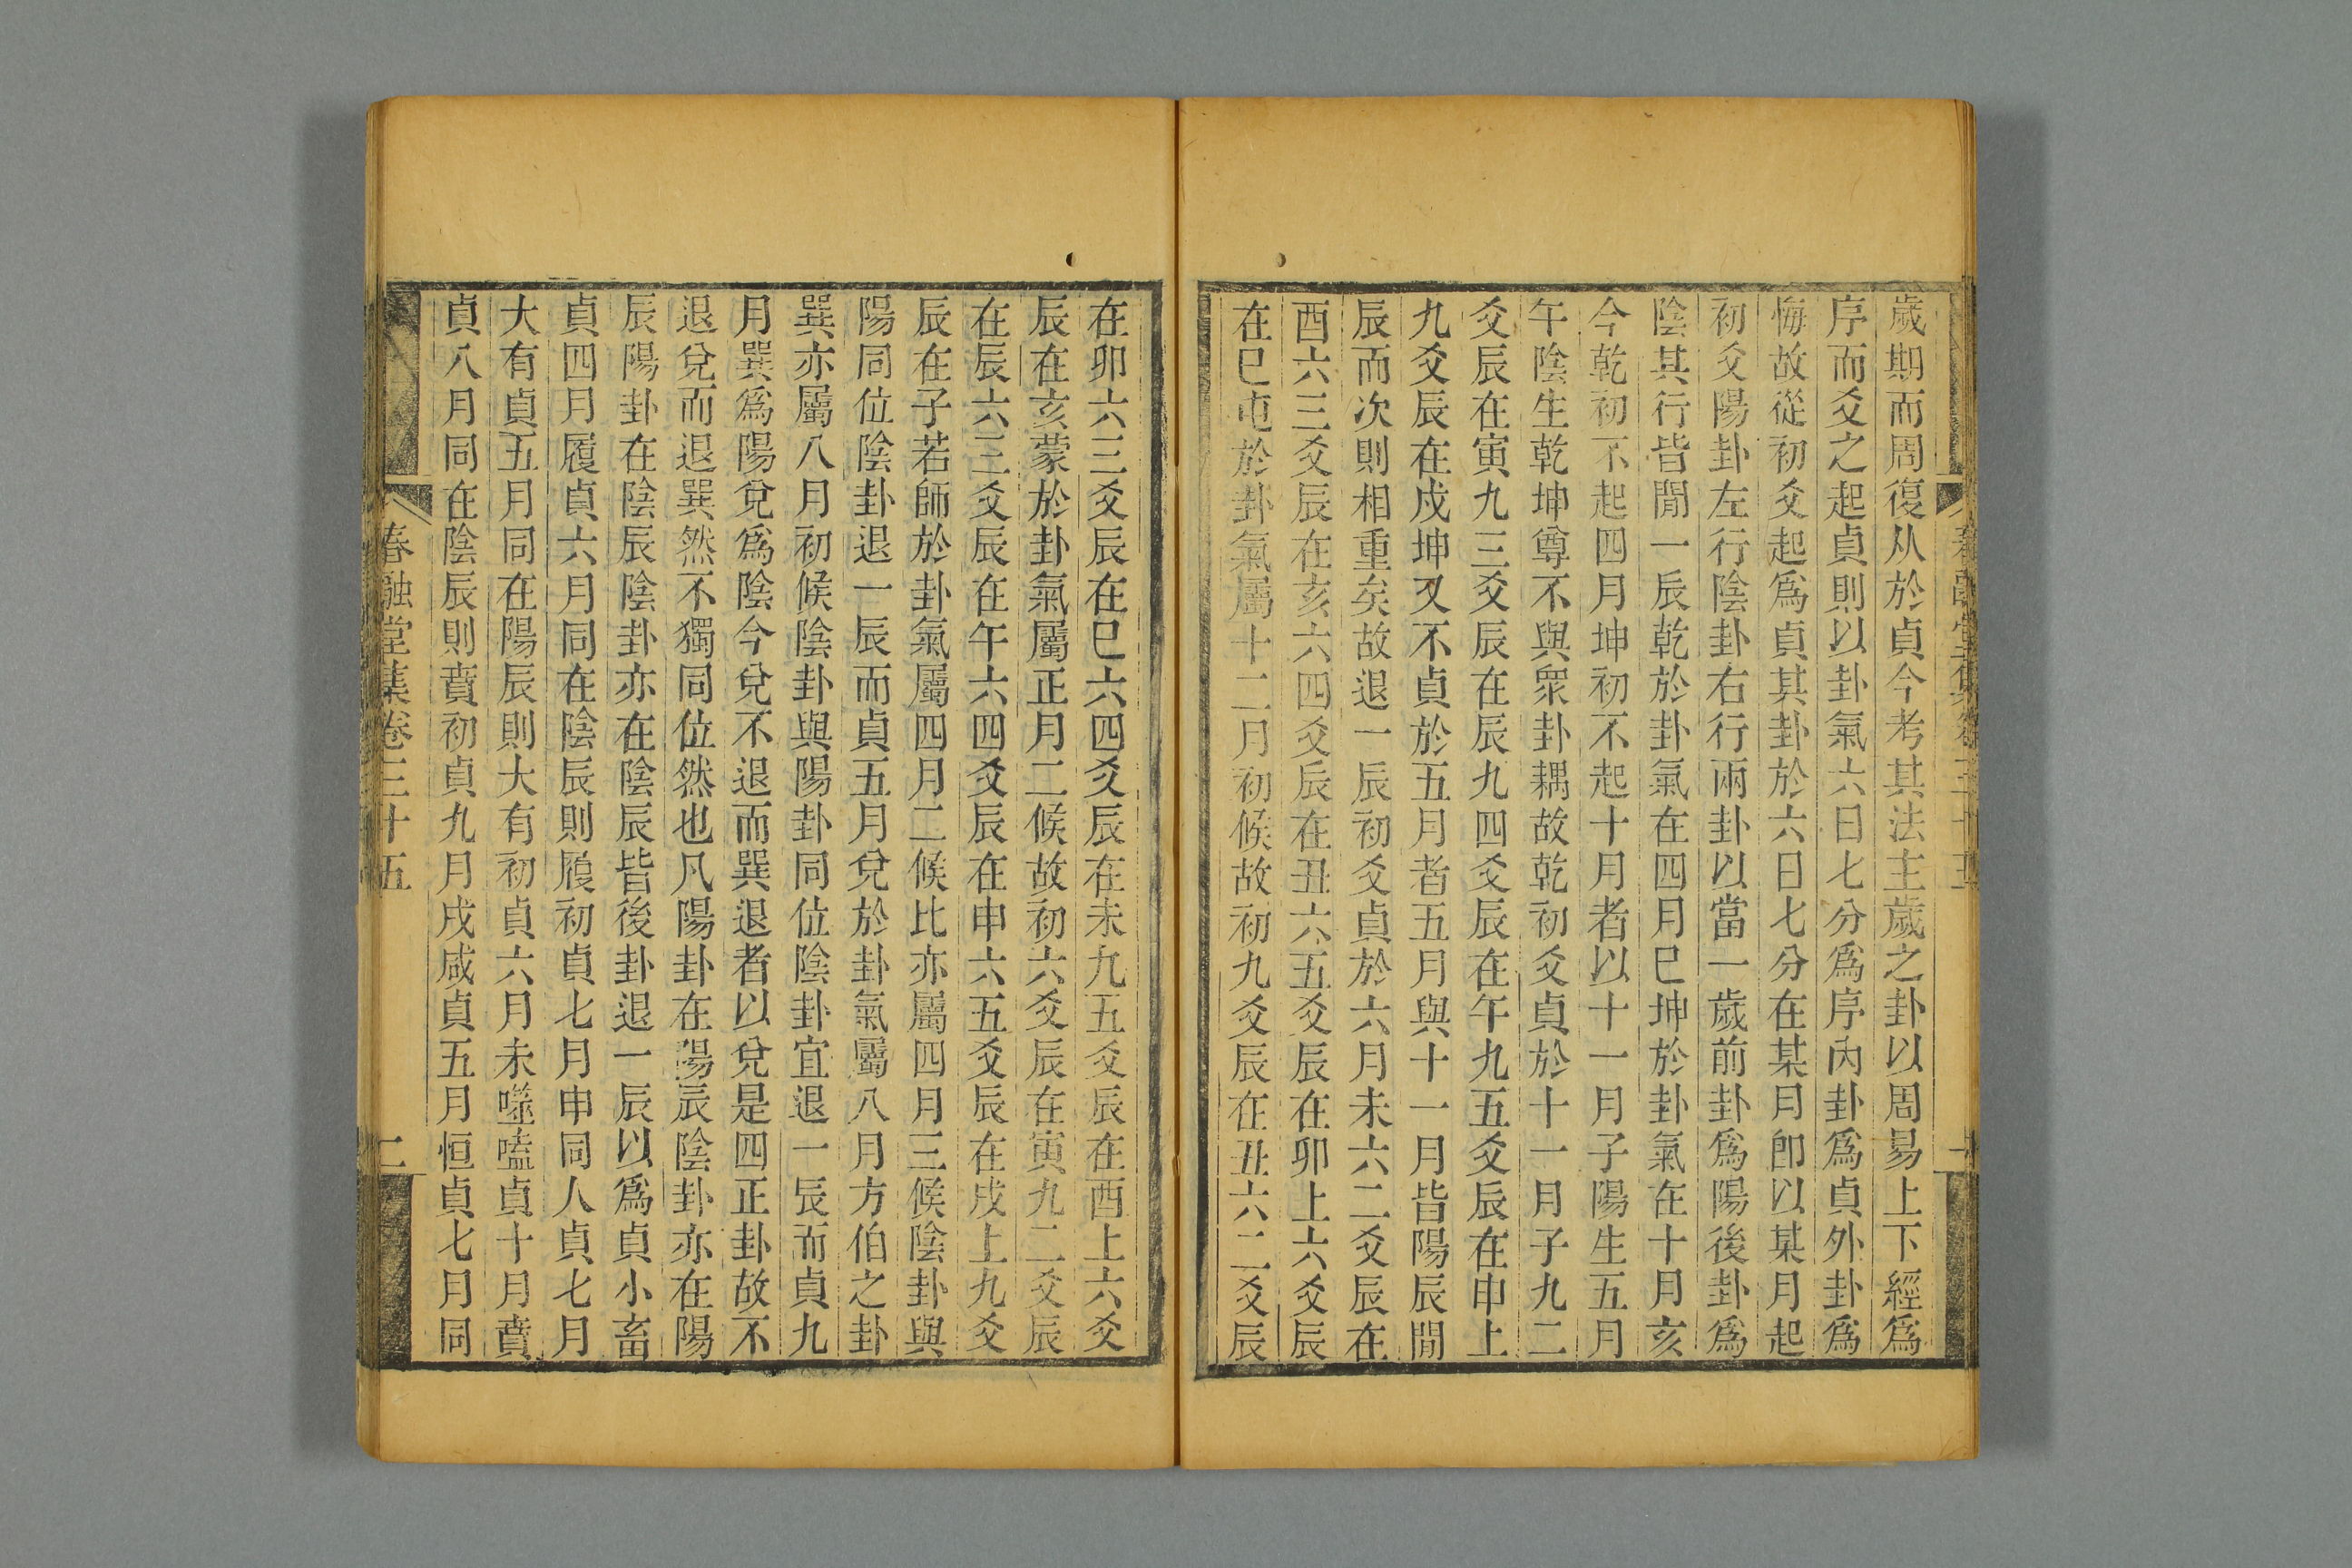 歲期而周復从於貞今考其法主歲之卦以周易上下經爲
序而爻之起貞則以卦氣六日七分爲序內卦爲貞外卦爲
悔故從初爻起爲貞其卦於六日七分在某月卽以某月起
初爻陽卦左行陰卦右行兩卦以當一歲前卦爲陽後卦爲
陰其行皆閒一辰乾於卦氣在四月巳坤於卦氣在十月亥
今乾初不起四月坤初不起十月者以十一月子陽生五月
午陰生乾坤尊不與衆卦耦故乾初爻貞於十一月子九二
爻辰在寅九三爻辰在辰九四爻辰在午九五爻辰在申上
九爻辰在戍坤又不貞於五月者五月與十一月皆陽辰閒
辰而次則相重矣故退一辰初爻貞於六月未六二爻辰在
酉六三爻辰在亥六四爻辰在丑六五爻辰在卯上六爻辰
在巳屯於卦氣屬十二月初候故初九爻辰在丑六二爻辰
春融堂集卷三十五
在卯六三爻辰在巳六四爻辰在未九五爻辰在酉上六爻
辰在亥蒙於卦氣屬正月二候故初六爻辰在寅九二爻辰
在辰六三爻辰在午六四爻辰在申六五爻辰在戍上九爻
辰在子若師於卦氣屬四月二候比亦屬四月三候陰卦與
陽同位陰卦退一辰而貞五月兌於卦氣屬八月方伯之卦
巽亦屬八月初候陰卦與陽卦同位陰卦宜退一辰而貞九
月巽爲陽兌爲陰今兌不退而巽退者以兌是四正卦故不
退兌而退巽然不獨同位然也凡陽卦在陽辰陰卦亦在陽
辰陽卦在陰辰陰卦亦在陰辰皆後卦退一辰以爲貞小畜
貞四月履貞六月同在陰辰則履初貞七月申同人貞七月
大有貞五月同在陽辰則大有初貞六月未噬嗑貞十月賁
貞八月同在陰辰則賁初貞九月戍咸貞五月恒貞七月同
春融堂集卷三十五
二